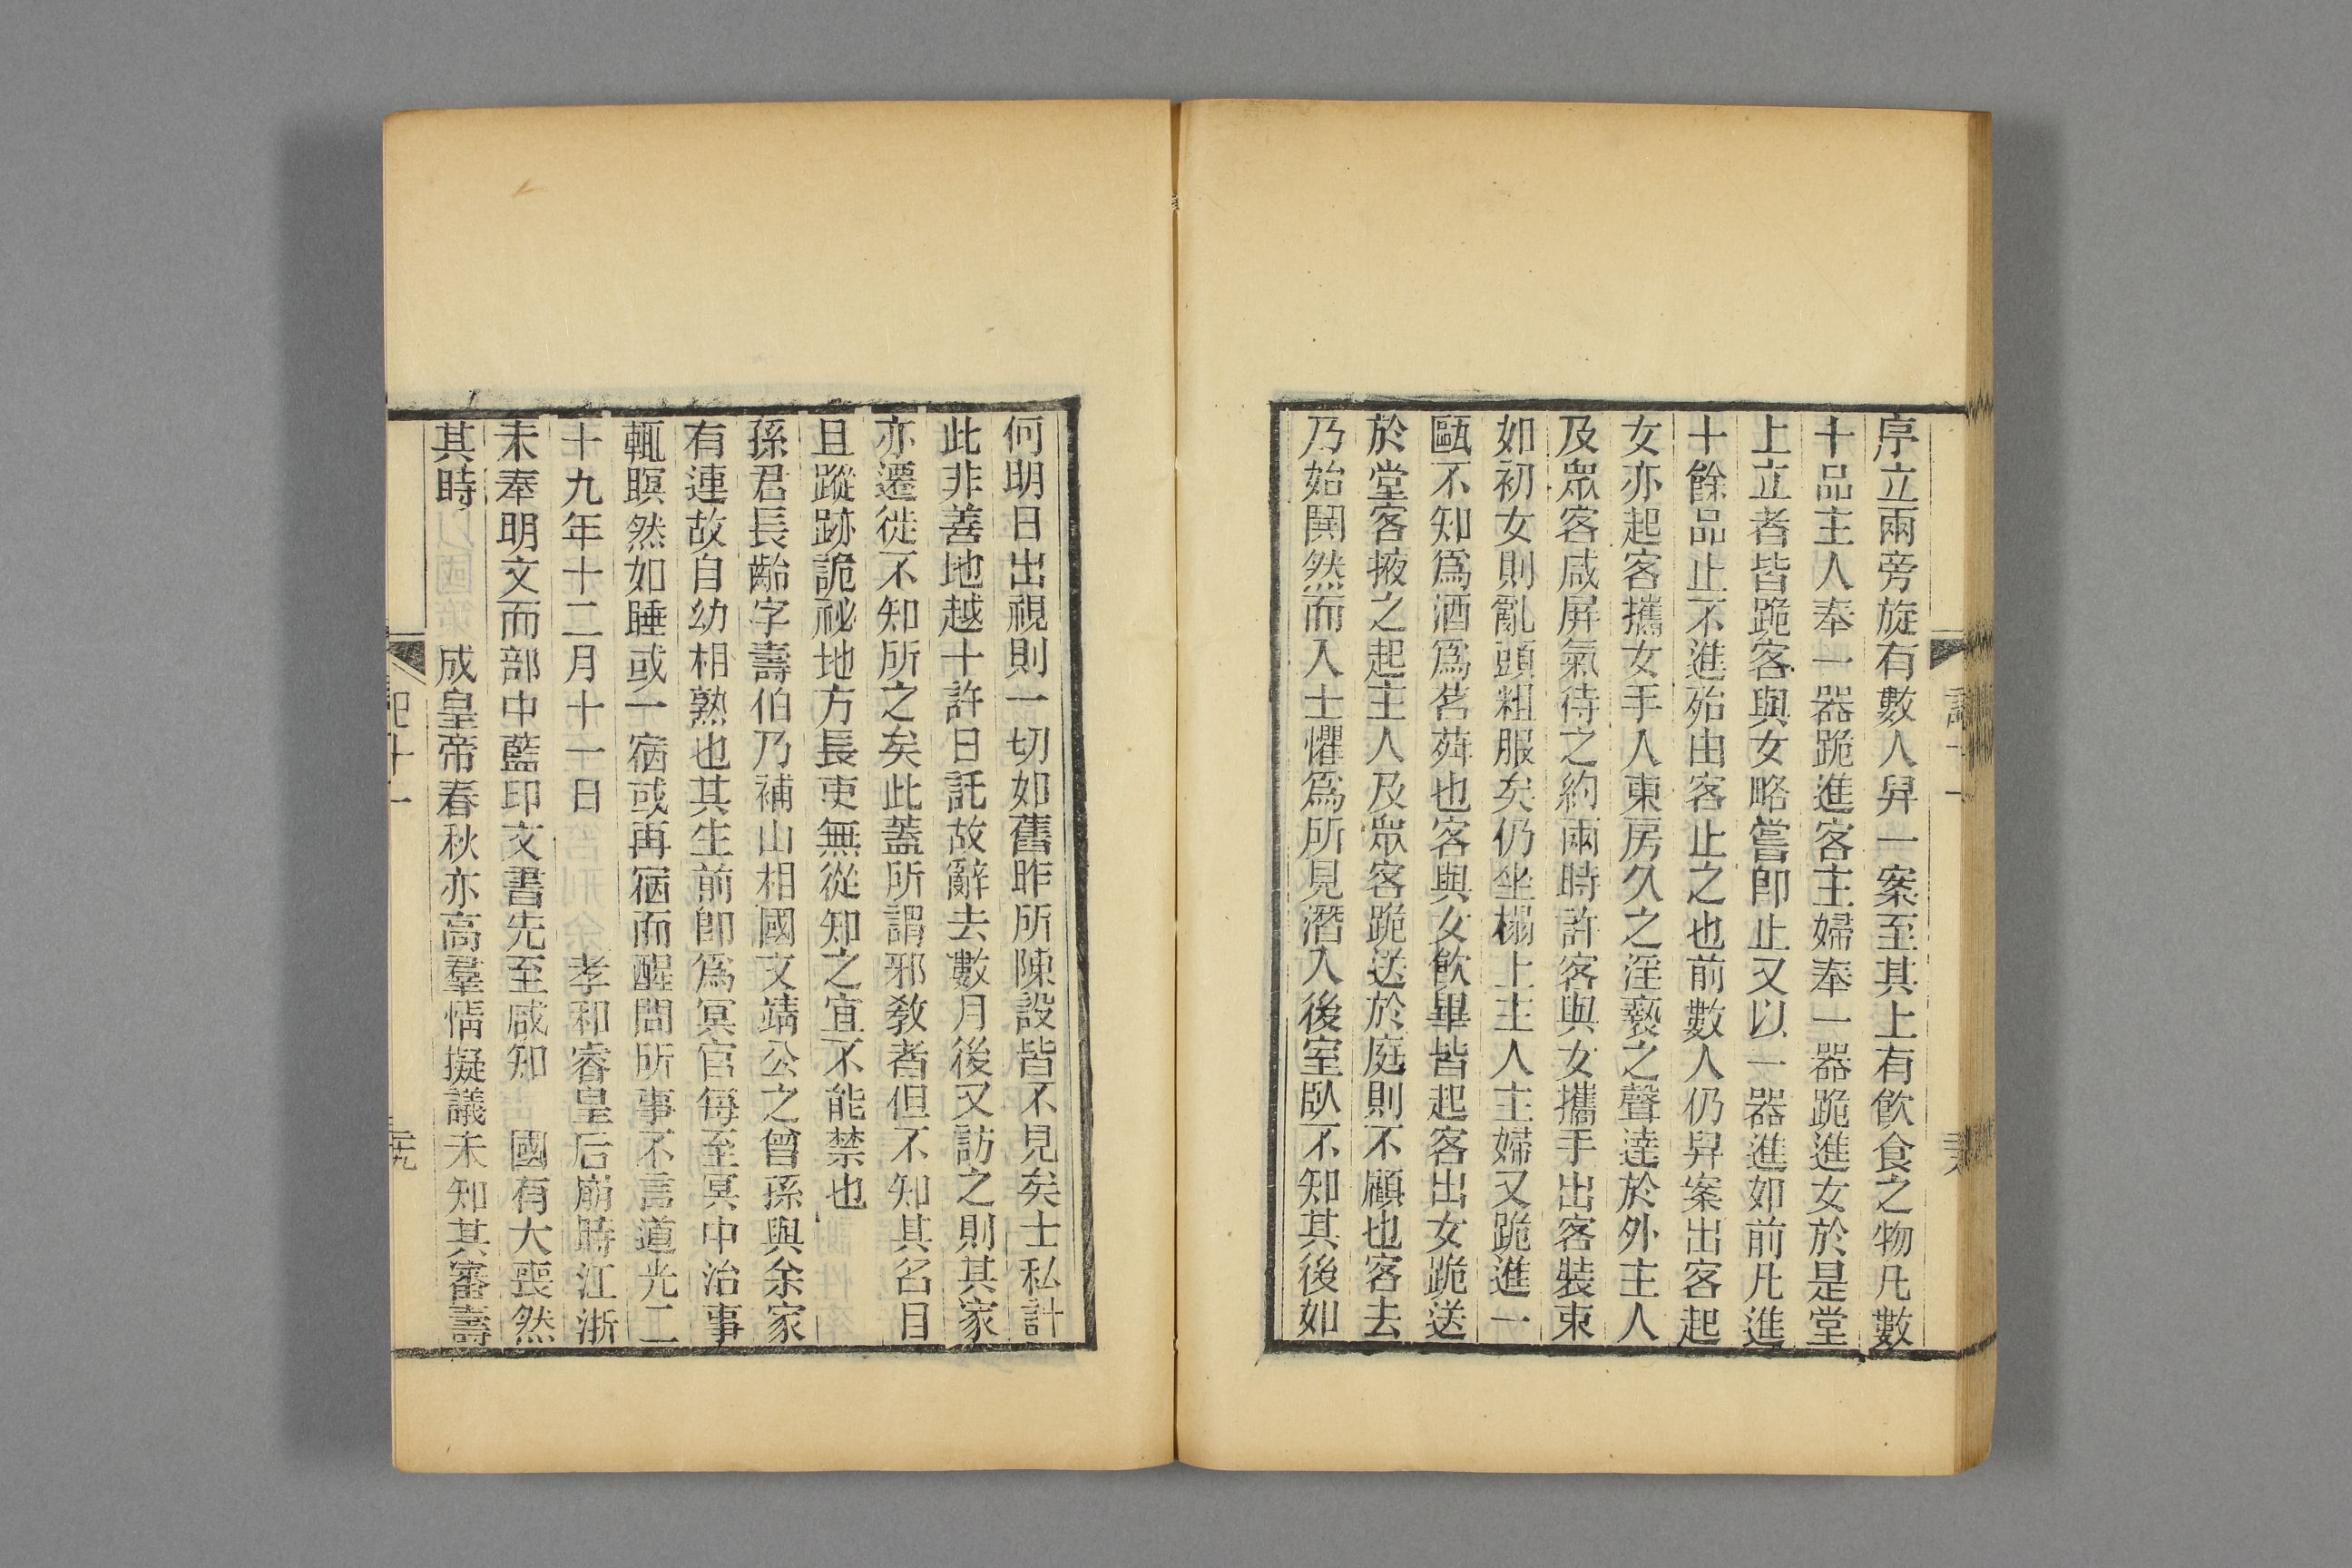 序立兩旁旋有數人舁一案至其上有飲食之物凡數
十品主人奉一器跪進客主婦奉一器跪進女於是堂
上立者皆跪客與女略嘗卽止又以一器進如前凡進
十餘品止不進殆由客止之也前數人仍舁案出客起
女亦起客攜女手人東房久之淫褻之聲達於外主人
及眾客咸屏氣待之約兩時許客與女攜手出客裝束
如初女則亂頭粗服矣仍坐榻上主人主婦又跪進一
甌不知爲酒爲茗荈也客與女飲畢皆起客出女跪送
於堂客掖之起主人及眾客跪送於庭則不顧也客去
乃始閧然而入士懼爲所見潛入後室臥不知其後如
何明日出視則一切如舊昨所陳設皆不見矣士私計
此非善地越十許日託故辭去數月後又訪之則其家
亦遷徙不知所之矣此蓋所謂邪敎者但不知其名目
且蹤跡詭祕地方長吏無從知之宜不能禁也
孫君長齡字壽伯乃補山相國文靖公之曾孫與余家
有連故自幼相熟也其生前卽爲冥官每至冥中治事
輒瞑然如睡或一宿或再宿而醒問所事不言道光二
十九年十二月十一日　孝和睿皇后崩時江浙
未奉明文而部中藍印文書先至咸知　國有大喪然
其時　成皇帝春秋亦高羣情擬議未知其審壽
記十一